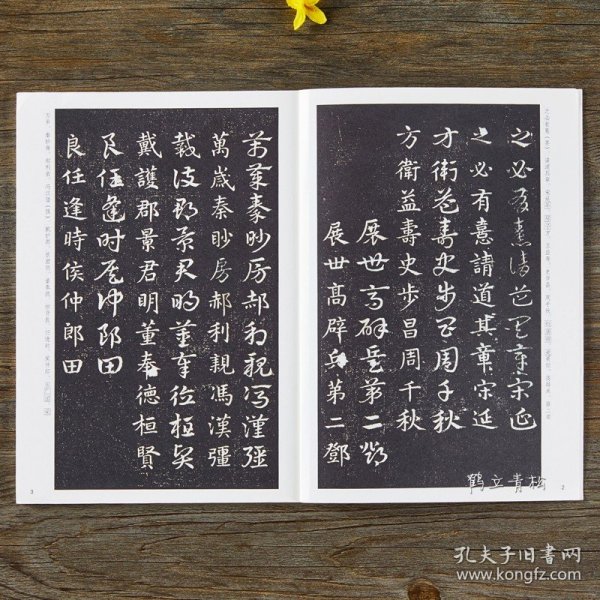 之必有憙請道其章宋延
之必有憙請道其章宋延
方衛益壽史步昌周千秋
方衛益壽史步昌周千秋
展世高辟兵第二鄧
展世高辟兵第二鄧
2
萬歲秦眇房郝利親馮漢彊
萬歲秦眇房郝利親馮漢彊
戴護郡景君明董奉德桓賢
戴護郡景君明董奉德桓賢
良任逢時侯仲郎田
良任逢時侯仲郎田
3
鹤立青松
孔夫子旧书网
www.kongfz.com